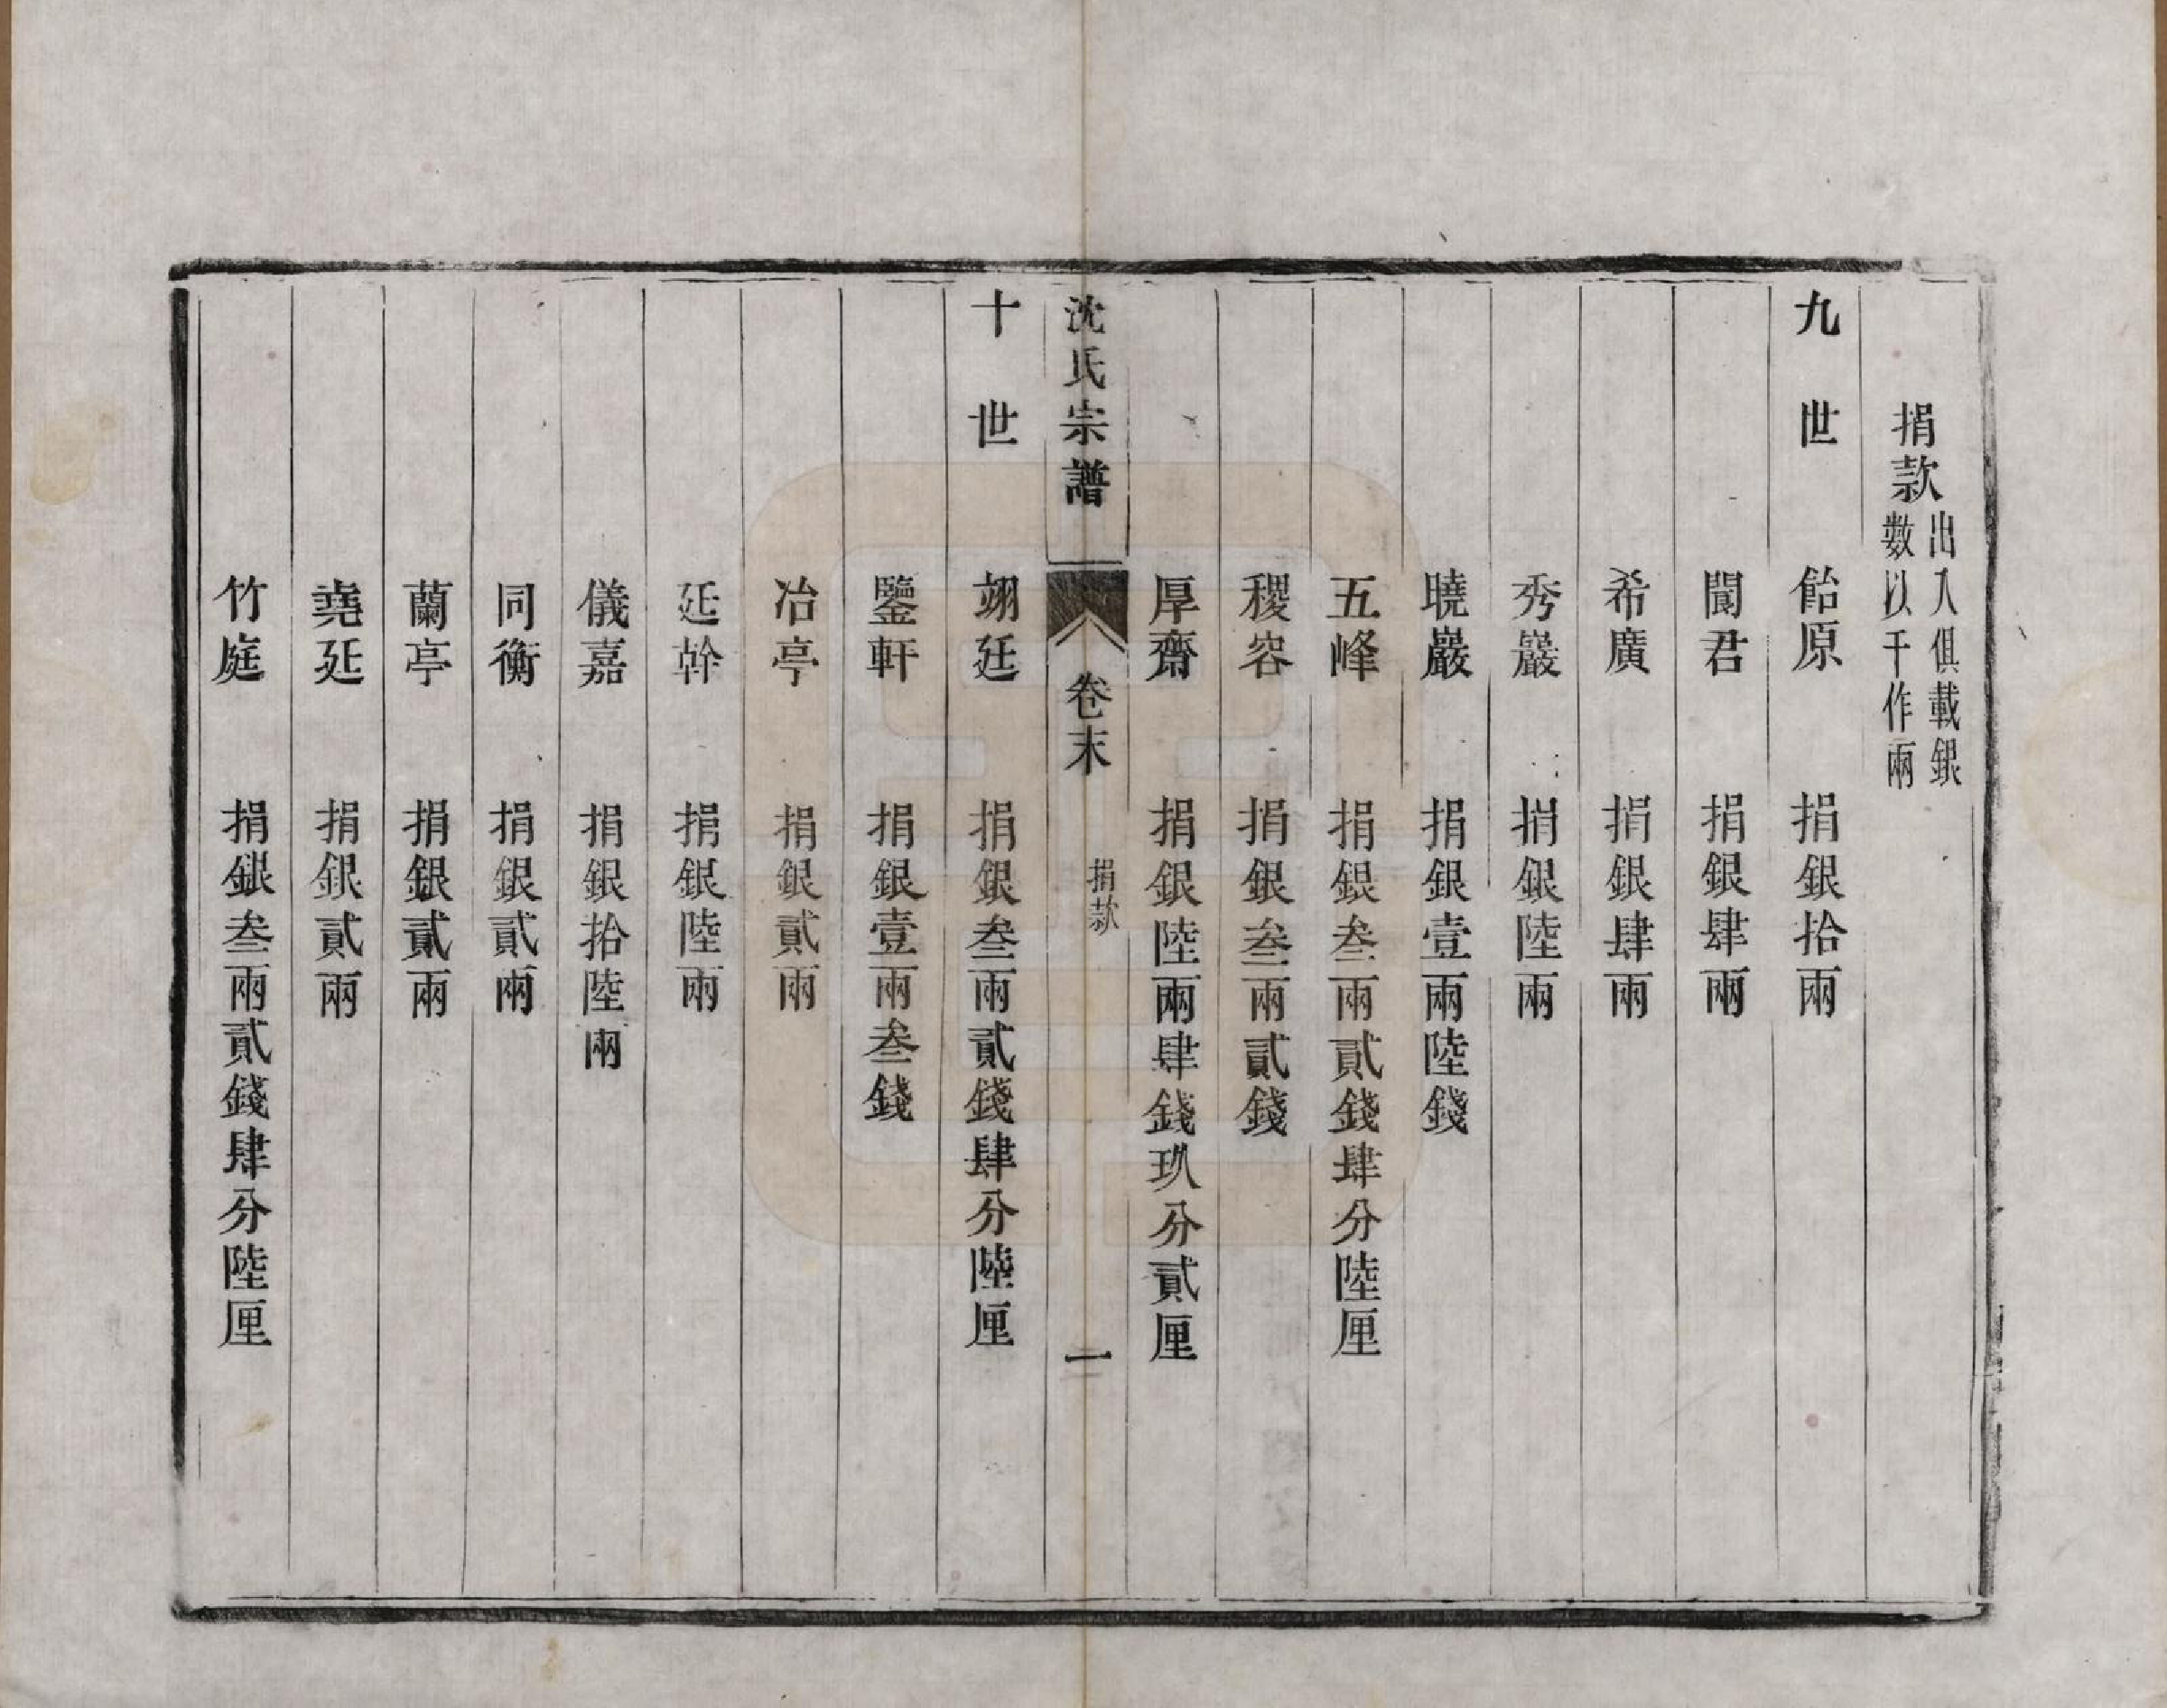 捐款出入俱載銀
數以千作兩
九世 飴原 捐銀拾兩
閬君 捐銀肆兩
希廣 捐銀肆兩
秀巖 捐銀陸兩
曉巖 捐銀壹兩陸錢
五峰 捐銀叁兩貳錢肆分陸厘
稷容 捐銀叁兩貳錢
厚齋 捐銀陸兩肆錢玖分貳厘
沈氏宗譜 卷末 捐款 一
十世 翊廷 捐銀叁兩貳錢肆分陸厘
鑒軒 捐銀壹兩叁錢
冶亭 捐銀貳兩
廷幹 捐銀陸兩
儀嘉 捐銀拾陸兩
同衡 捐銀貳兩
蘭亭 捐銀貳兩
堯廷 捐銀貳兩
竹庭 捐銀叁兩貳錢肆分陸厘